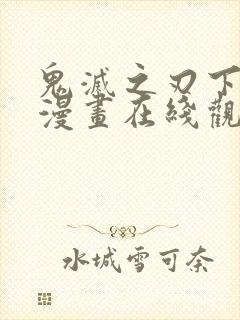 鬼滅之刃下
漫畫在綫觀
水城雪可奈